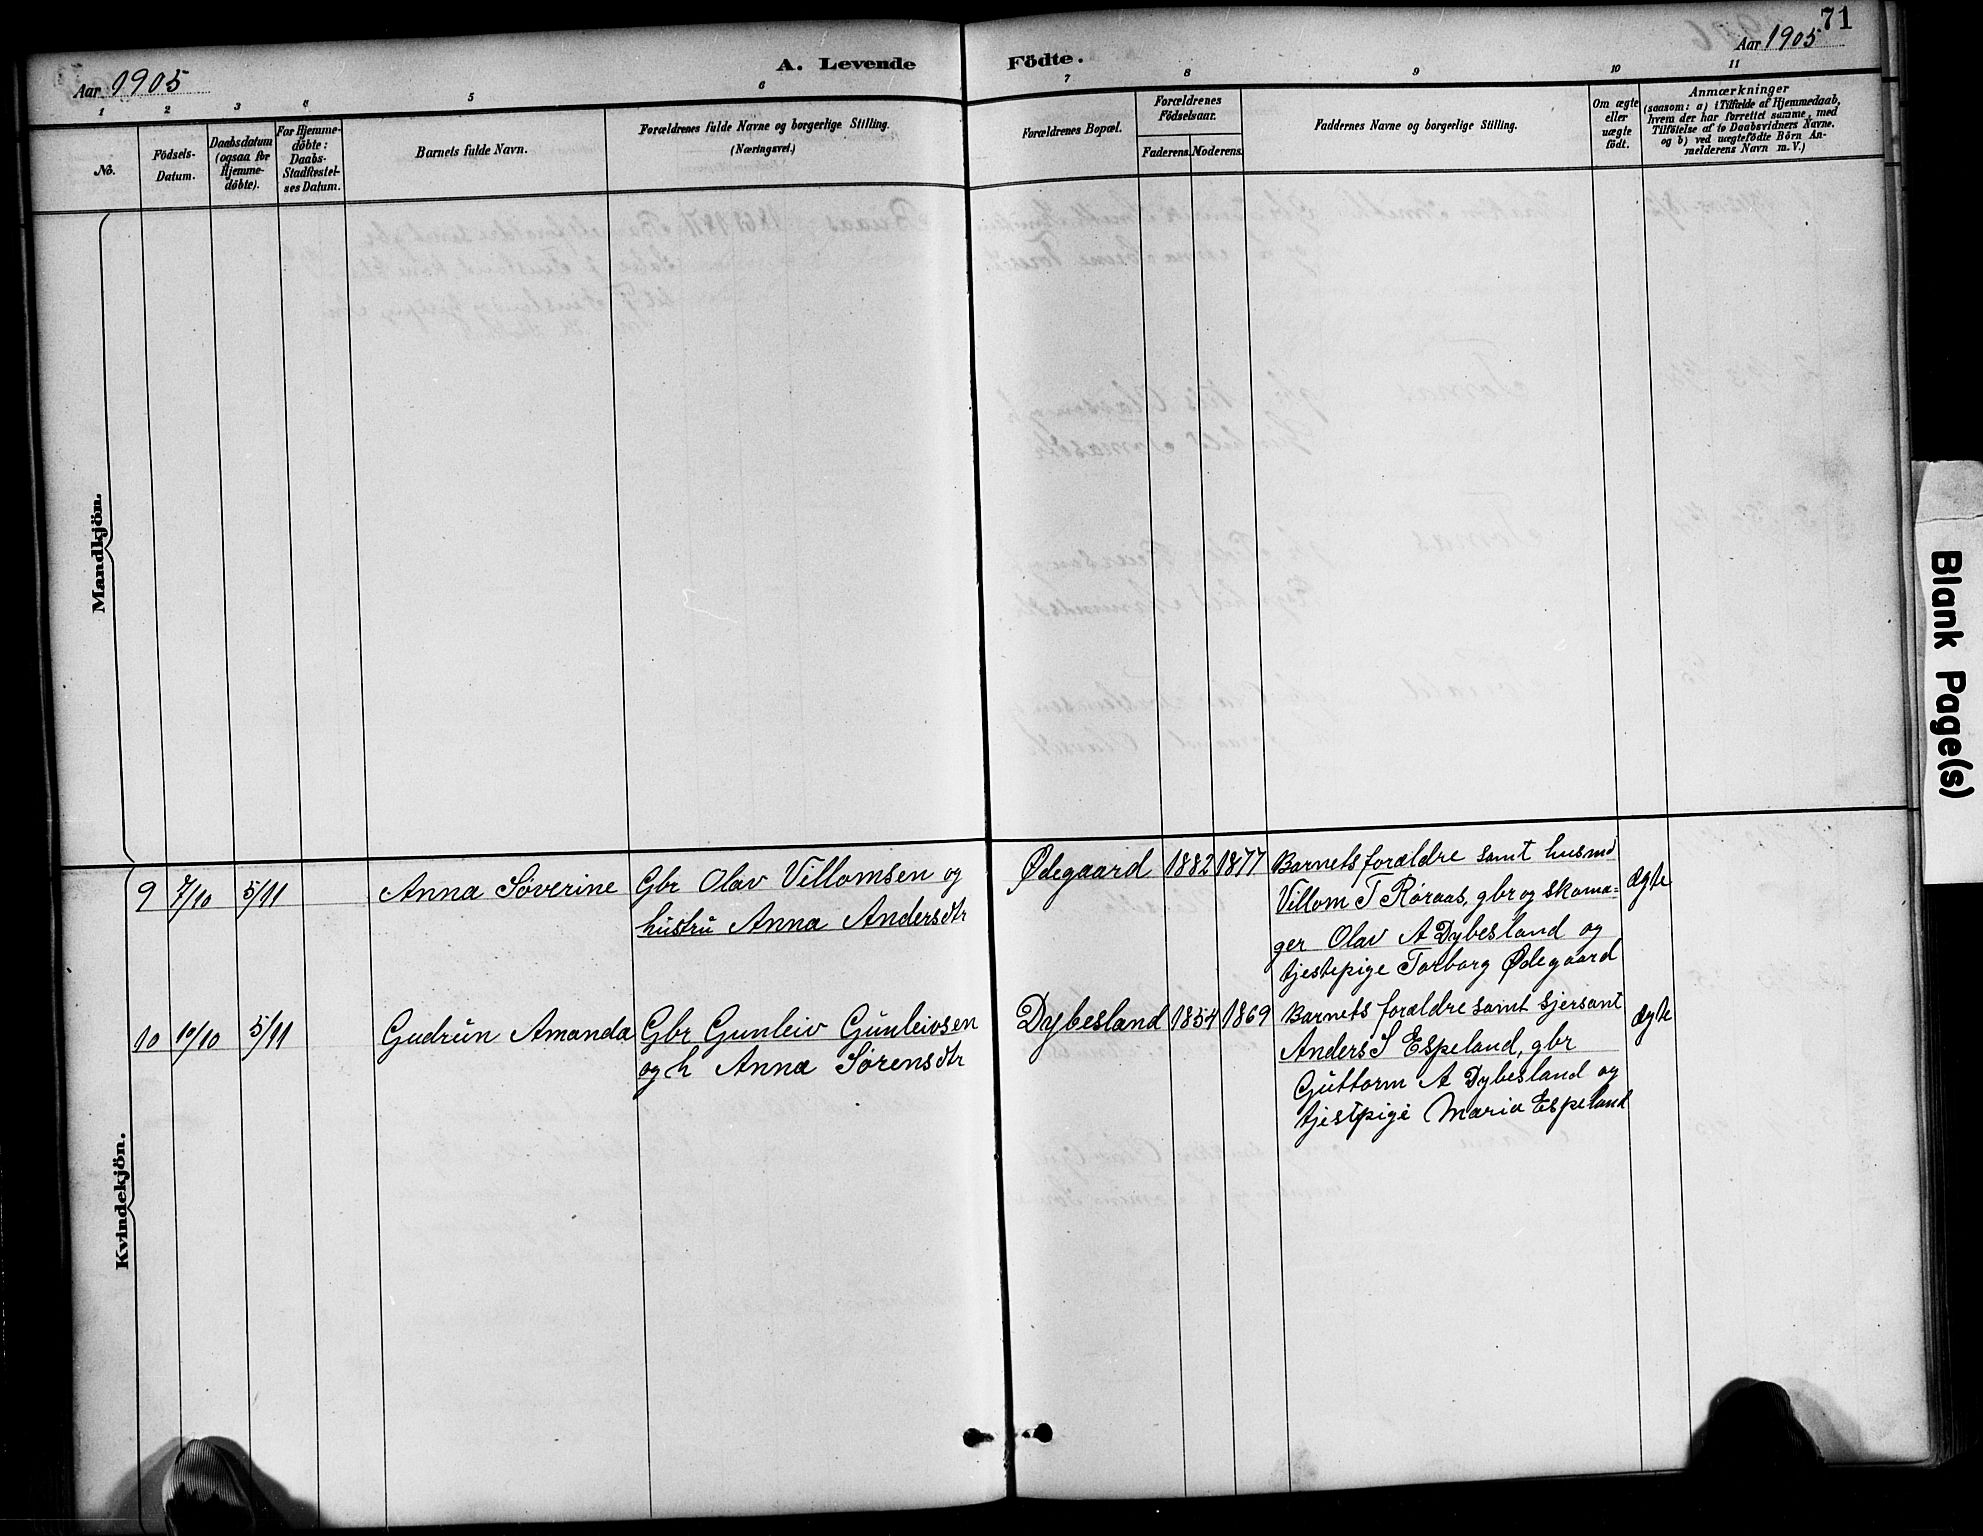 71
Aar 1905
A. Levende Födte.
Aar 1905
1 2 3 4 5 6 7 8 9 10 11
No.
Födsels-
Datum.
Daabsdatum
(ogsaa for
Hjemme-
döbte).
For Hjemme-
döbte:
Daabs-
Stadfæstel-
ses Datum.
Barnets fulde Navn.
Forældrenes fulde Navne og borgerlige Stilling.
(Næringsvei.)
Forældrenes Bopæl.
Forældrenes
Födselsaar.
Faderens. Moderens.
Faddernes Navne og borgerlige Stilling.
Om ægte
eller
uægte
födt.
Anmærkninger
(saasom: a) i Tilfælde af Hjemmedaab,
hvem der har forrettet samme, med
Tilföielse af to Daabsvidners Navne.
og b) ved uægtefödte Börn An-
melderens Navn m. V.)
Mandkjön.
Kvindekjön.
9 7/10 5/11 Anna Severine
Gbr Olav Villomsen og
hustru Anna Andersdtr
Ødegaard 1882 1877
Barnets forældre samt husmd
Villom T Røraas, gbr og skoma=
ger Olav A Dybesland og
tjestepige Torborg Ødegaard
ægte
10 10/10 5/11 Gudrun Amanda
Gbr Gunleiv Gunleivsen
og h Anna Sørensdtr
Dybesland 1854 1869
Barnets forældre samt sjersant
Anders S Espeland, gbr
Guttorm A Dybesland og
tjestpige Maria Espeland
ægte
Blank Page(s)